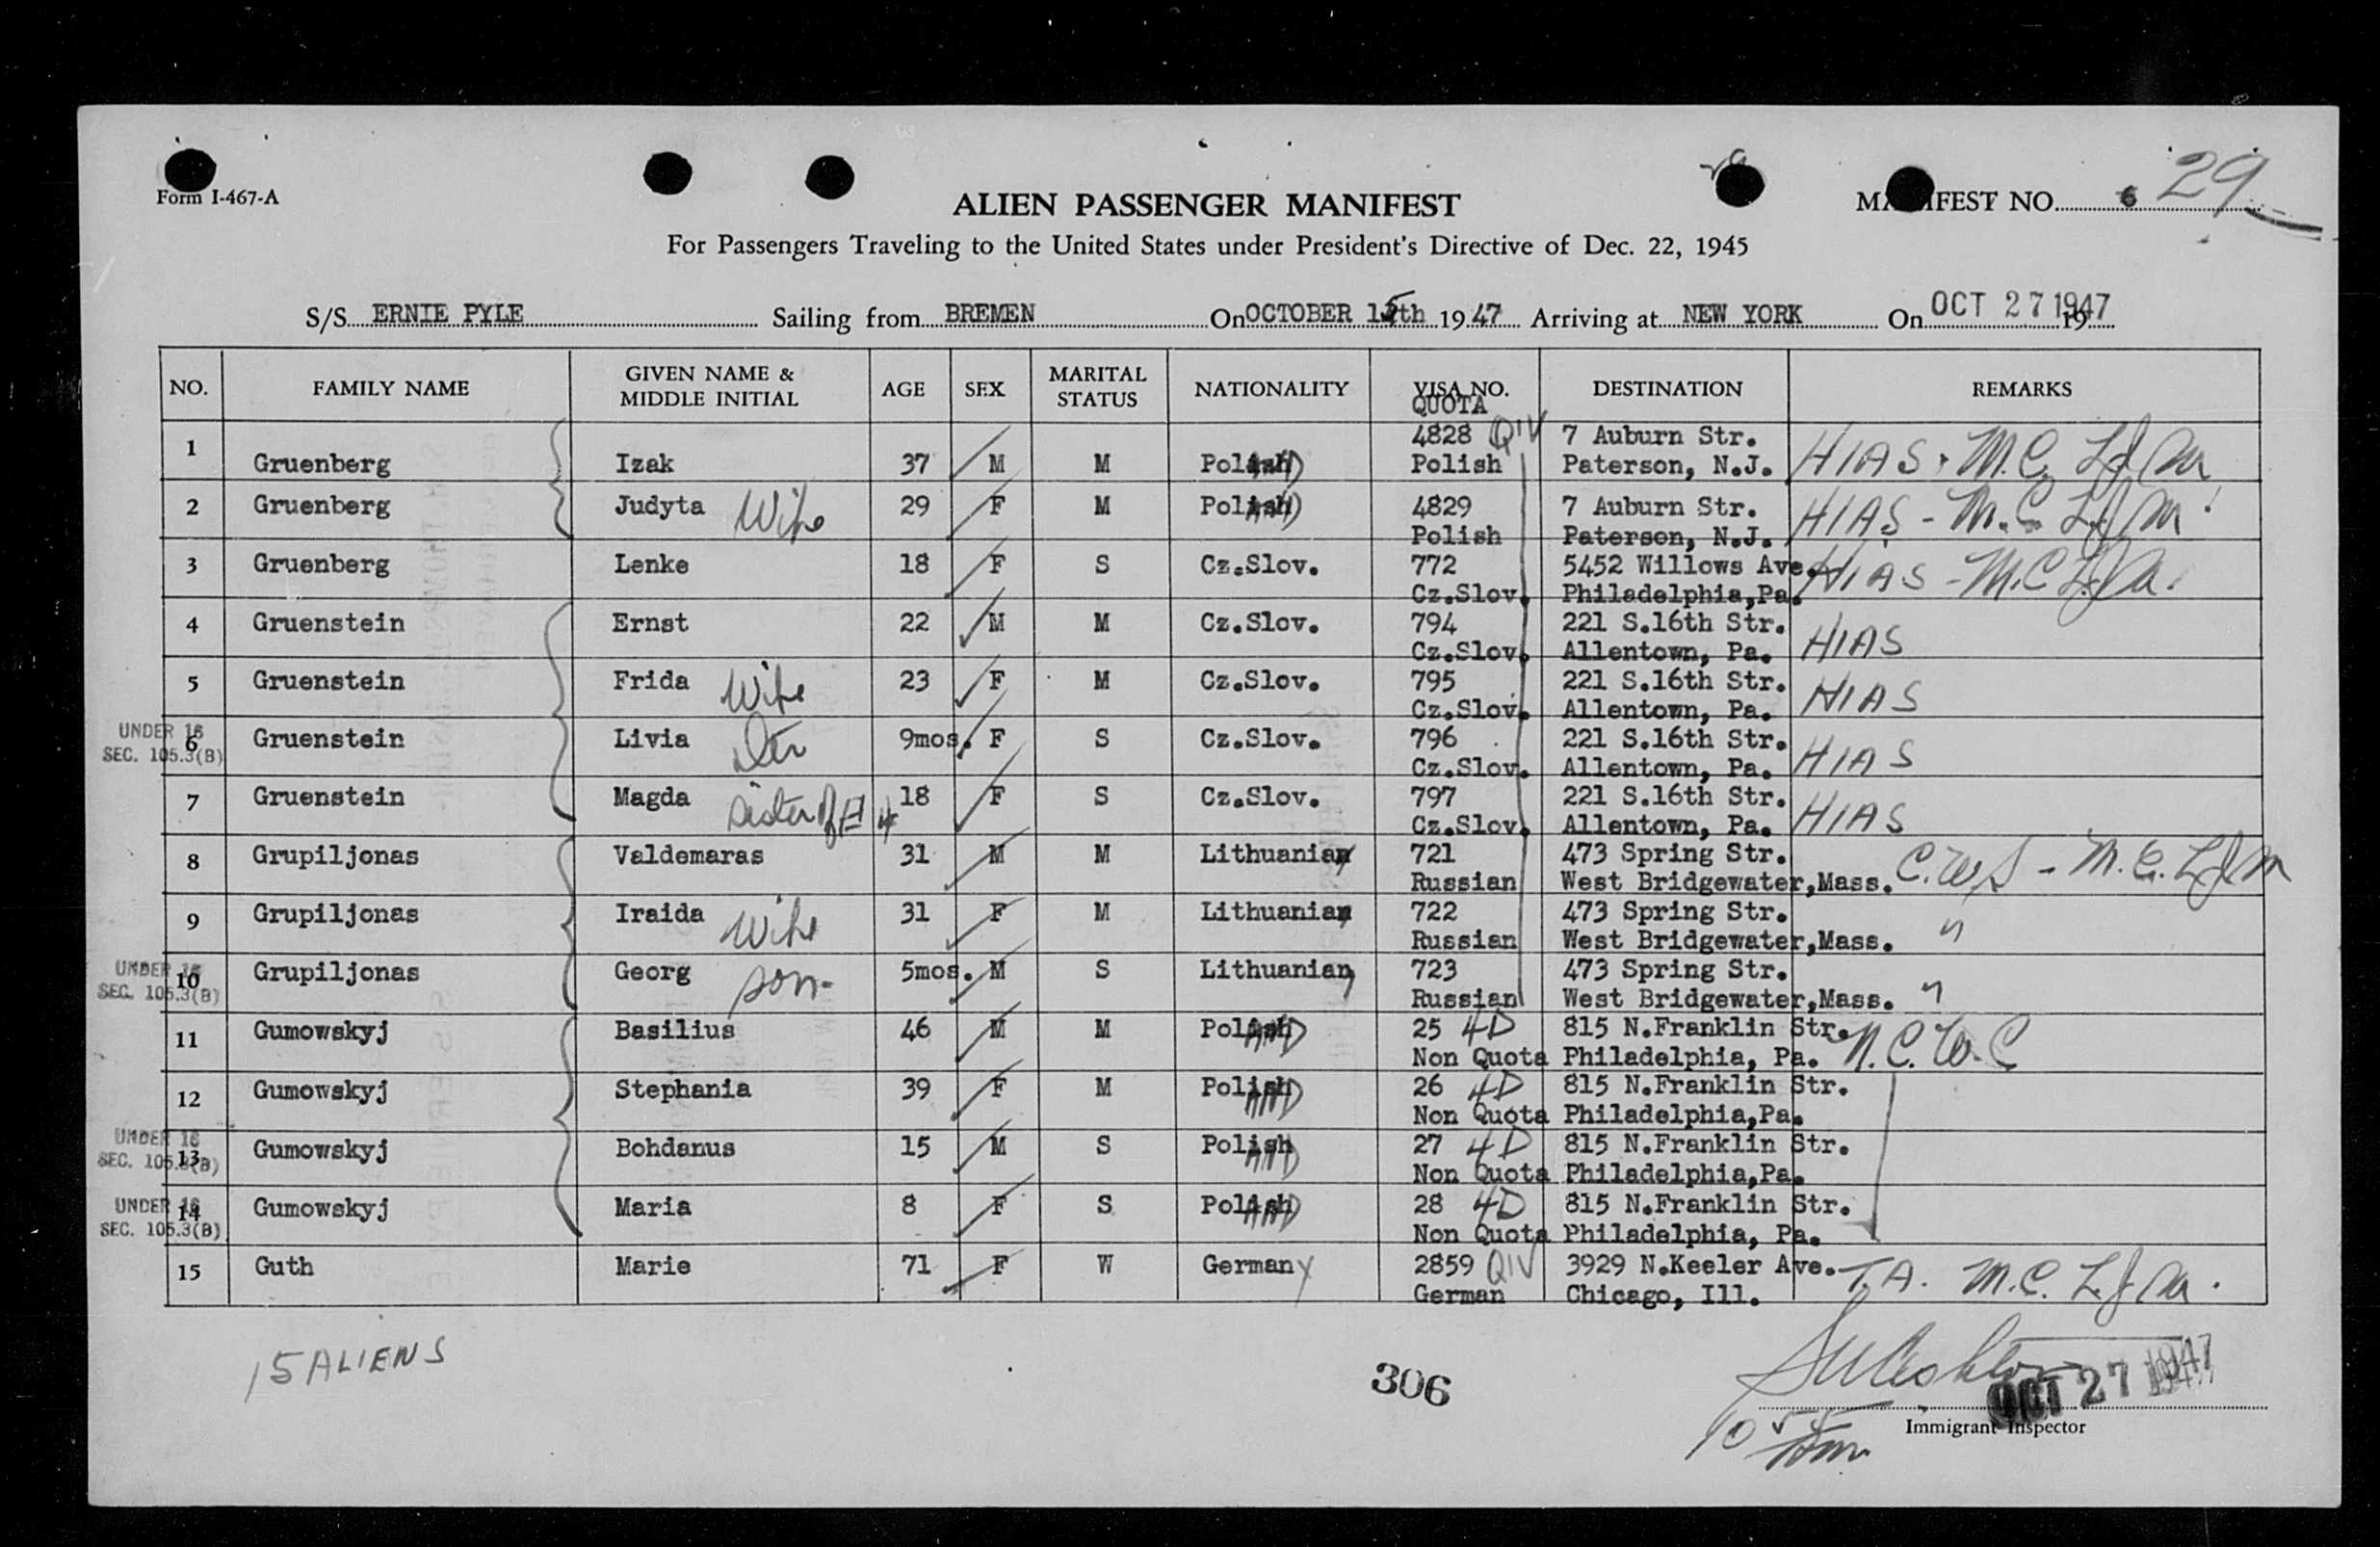 29
Form I-467-A
ALIEN PASSENGER MANIFEST
MANIFEST NO. 6
For Passengers Traveling to the United States under President's Directive of Dec. 22, 1945
S/S ERNIE PYLE Sailing from BREMEN On OCTOBER 15th 1947 Arriving at NEW YORK On OCT 27 1947 19
NO. FAMILY NAME GIVEN NAME & MIDDLE INITIAL AGE SEX MARITAL STATUS NATIONALITY VISA NO. QUOTA DESTINATION REMARKS
4828 QIV 7 Auburn Str.
1 Gruenberg Izak 37 M M Poland Polish Paterson, N.J. HIAS. M.C.
2 Gruenberg Judyta Wife 29 F M Poland 4829 7 Auburn Str. HIAS - M.C.
Polish Paterson, N.J.
3 Gruenberg Lenke 18 F S Cz.Slov. 772 5452 Willows Ave. HIAS - M.C
Cz.Slov. Philadelphia,Pa.
4 Gruenstein Ernst 22 M M Cz.Slov. 794 221 S.16th Str. HIAS
Cz.Slov. Allentown, Pa.
5 Gruenstein Frida Wife 23 F M Cz.Slov. 795 221 S.16th Str. HIAS
Cz.Slov. Allentown, Pa.
UNDER 16
SEC. 105.3(B)
6 Gruenstein Livia Dtr 9mos. F S Cz.Slov. 796 221 S.16th Str. HIAS
Cz.Slov. Allentown, Pa.
7 Gruenstein Magda Sister of # 4 18 F S Cz.Slov. 797 221 S.16th Str. HIAS
Cz.Slov. Allentown, Pa.
8 Grupiljonas Valdemaras 31 M M Lithuania 721 473 Spring Str. C.W.S - M.C.
Russian West Bridgewater,Mass.
9 Grupiljonas Iraida Wife 31 F M Lithuania 722 473 Spring Str. "
Russian West Bridgewater,Mass.
UNDER 16
SEC. 105.3(B)
10 Grupiljonas Georg son- 5mos. M S Lithuania 723 473 Spring Str. "
Russian West Bridgewater,Mass.
11 Gumowskyj Basilius 46 M M Poland 25 4D 815 N.Franklin Str. N.C.W.C
Non Quota Philadelphia, Pa.
12 Gumowskyj Stephania 39 F M Poland 26 4D 815 N.Franklin Str.
Non Quota Philadelphia,Pa.
UNDER 16
SEC. 105.3(B)
13 Gumowskyj Bohdanus 15 M S Poland 27 4D 815 N.Franklin Str.
Non Quota Philadelphia,Pa.
UNDER 16
SEC. 105.3(B)
14 Gumowskyj Maria 8 F S Poland 28 4D 815 N.Franklin Str.
Non Quota Philadelphia, Pa.
15 Guth Marie 71 F W Germany 2859 QIV 3929 N.Keeler Ave. T.A. M.C.
German Chicago, Ill.
15 ALIENS
306
OCT 27 1947
Immigrant Inspector